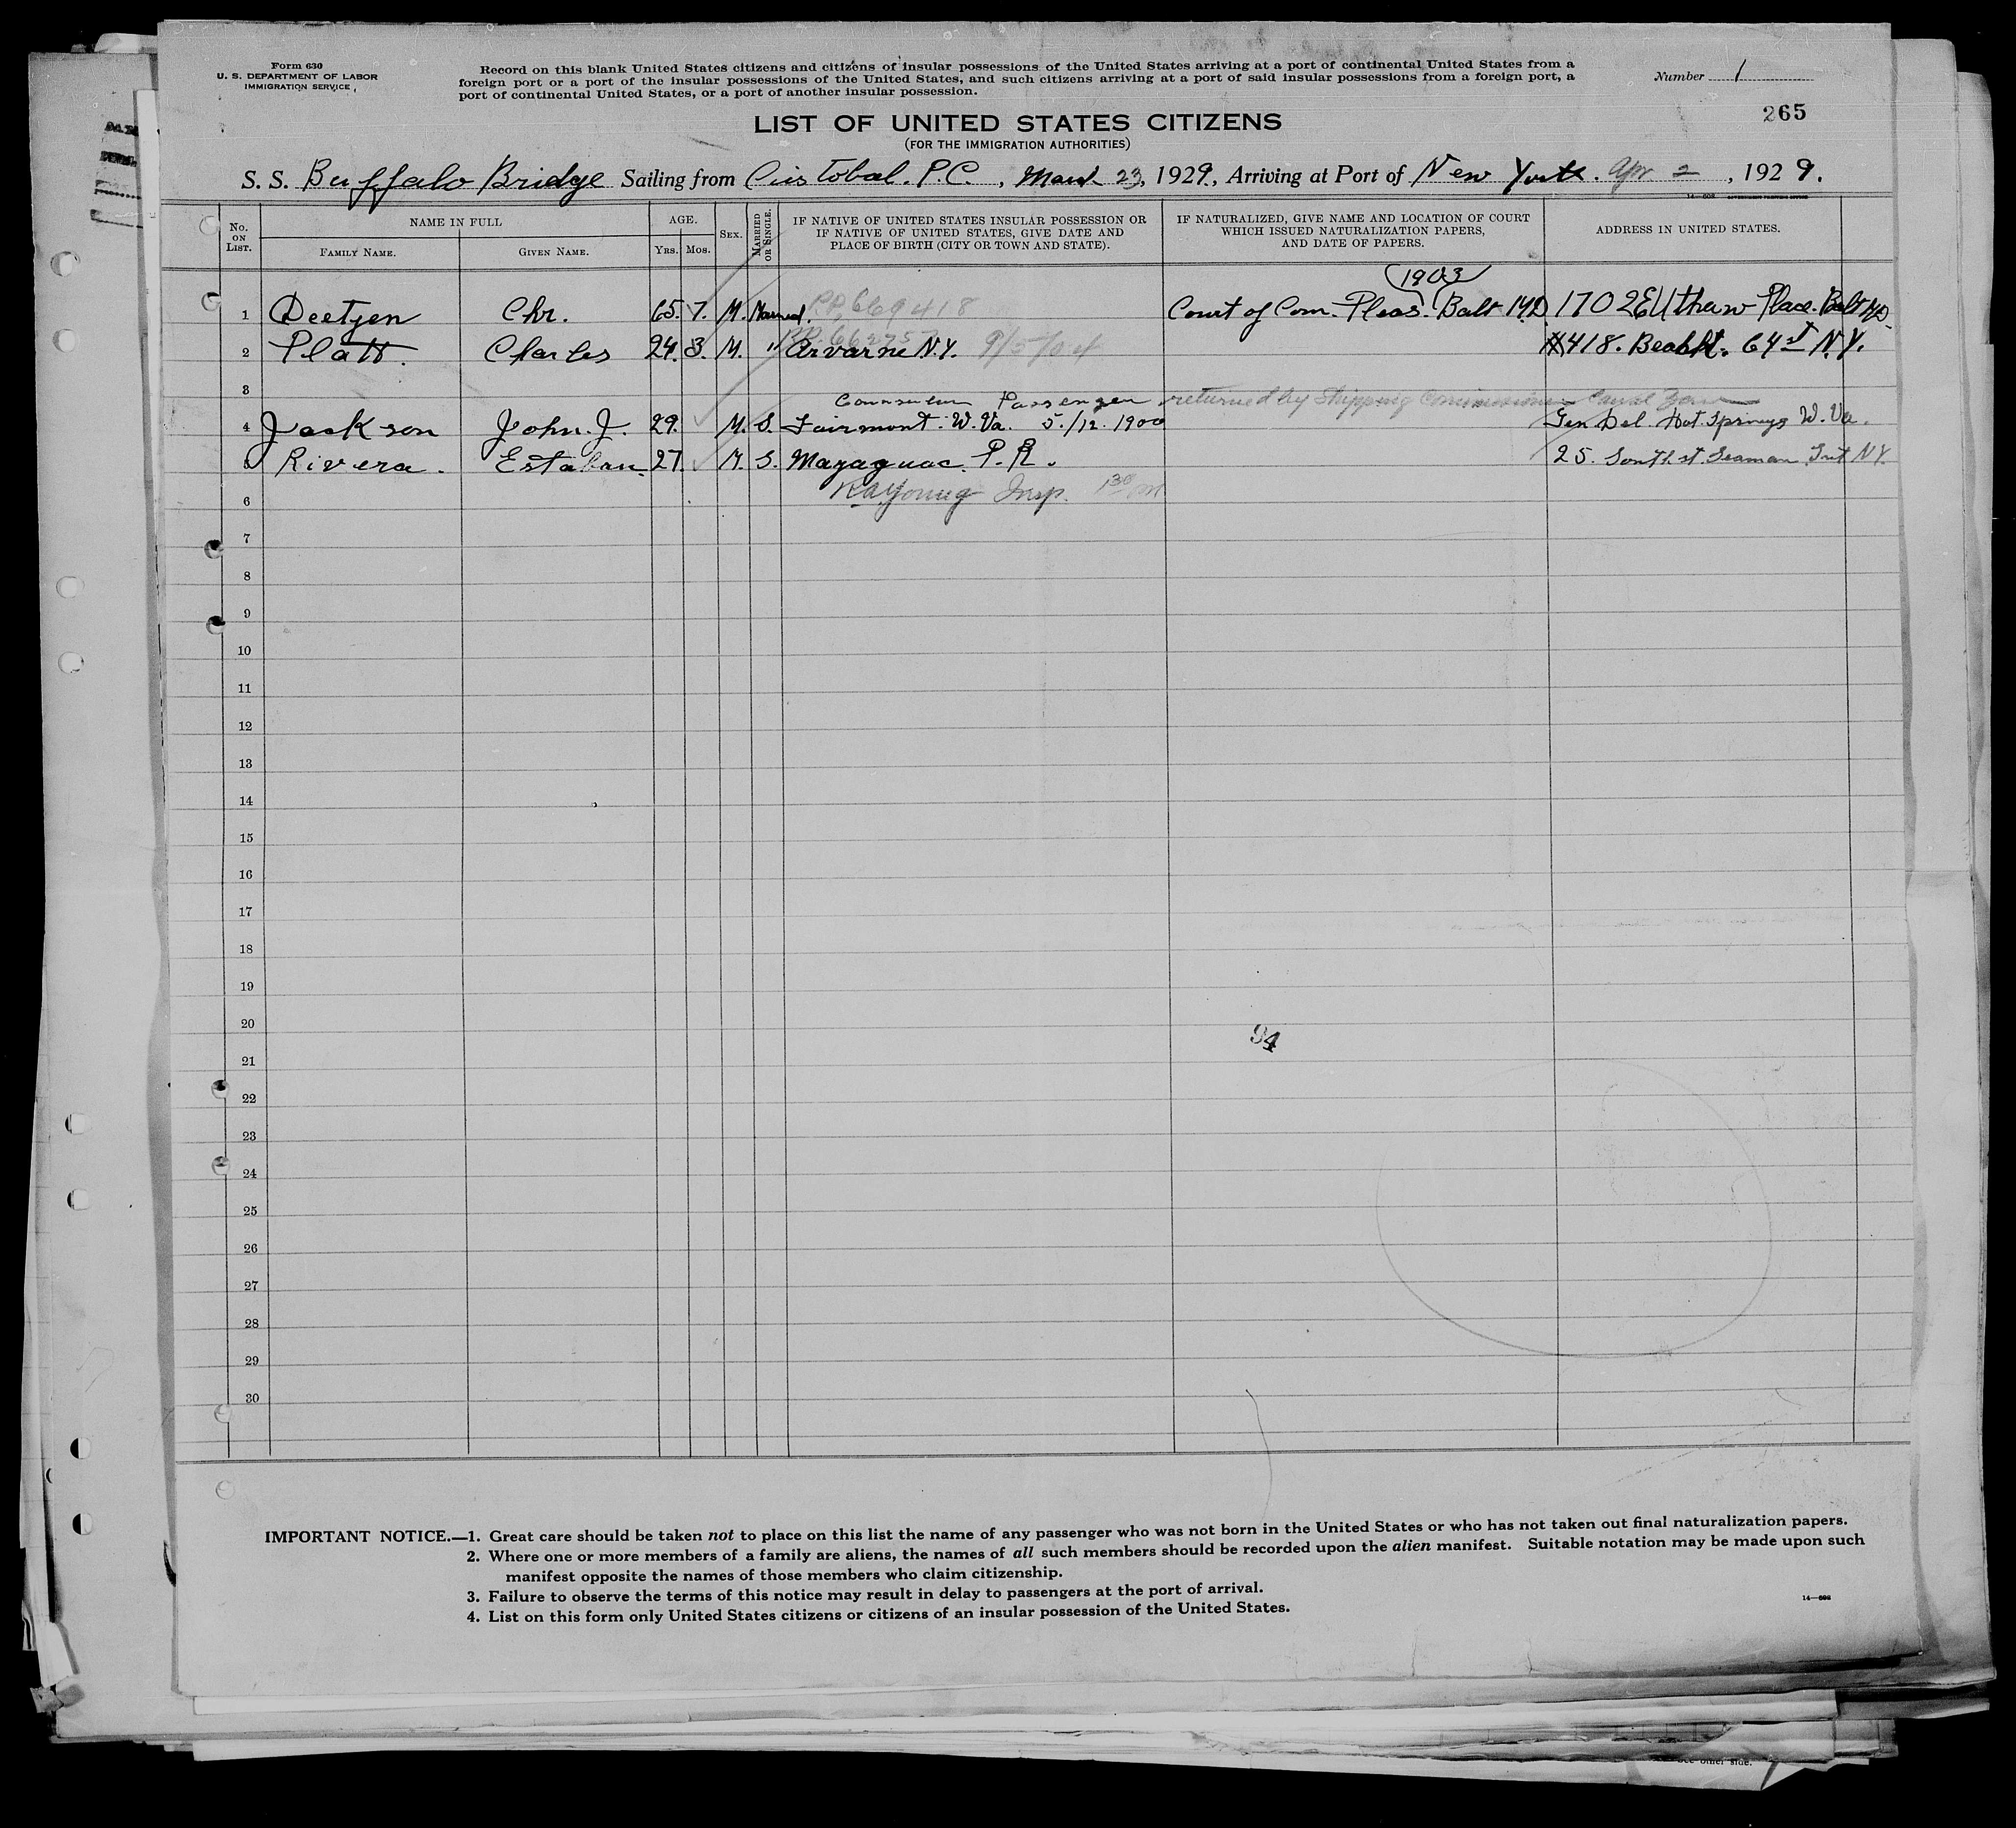 Form 630
U. S. DEPARTMENT OF LABOR
IMMIGRATION SERVICE
Record on this blank United States citizens and citizens of insular possessions of the United States arriving at a port of continental United States from a
foreign port or a port of the insular possessions of the United States, and such citizens arriving at a port of said insular possessions from a foreign port, a
port of continental United States, or a port of another insular possession.
Number 1
265
LIST OF UNITED STATES CITIZENS
(FOR THE IMMIGRATION AUTHORITIES)
S. S. Buffalo Bridge Sailing from Cristobal. P.C., March 23, 1929, Arriving at Port of New York. Apr 2, 1929.
No. ON LIST. NAME IN FULL FAMILY NAME. GIVEN NAME. AGE. YRS. MOS. SEX. MARRIED OR SINGLE. IF NATIVE OF UNITED STATES INSULAR POSSESSION OR IF NATIVE OF UNITED STATES, GIVE DATE AND PLACE OF BIRTH (CITY OR TOWN AND STATE). IF NATURALIZED, GIVE NAME AND LOCATION OF COURT WHICH ISSUED NATURALIZATION PAPERS, AND DATE OF PAPERS. ADDRESS IN UNITED STATES.
(1903)
1 Deetjen Chr. 65. 7. M. Married. P.P. 669418 Court of Com. Pleas. Balt MD 1702 Euthaw Place. Balt MD.
2 Platt. Charles 24. 3. M. " Arvarne N.Y. 9/5/04 #418. Beach. 64st N.Y.
3
Passenger returned by Shipping Commissioner Canal Zone
4 Jackson John. J. 29. M. S. Fairmont. W. Va. 5./12. 1900 Gen Del. Hot Springs W. Va.
5 Rivera. Estaban. 27. M. S. Mayaguac. P.R. 25. South. st. Seaman Inst NY.
RA Young Insp.
6
7
8
9
10
11
12
13
14
15
16
17
18
19
20
94
21
22
23
24
25
26
27
28
29
30
IMPORTANT NOTICE.—1. Great care should be taken not to place on this list the name of any passenger who was not born in the United States or who has not taken out final naturalization papers.
2. Where one or more members of a family are aliens, the names of all such members should be recorded upon the alien manifest. Suitable notation may be made upon such
manifest opposite the names of those members who claim citizenship.
3. Failure to observe the terms of this notice may result in delay to passengers at the port of arrival.
4. List on this form only United States citizens or citizens of an insular possession of the United States.
other side.